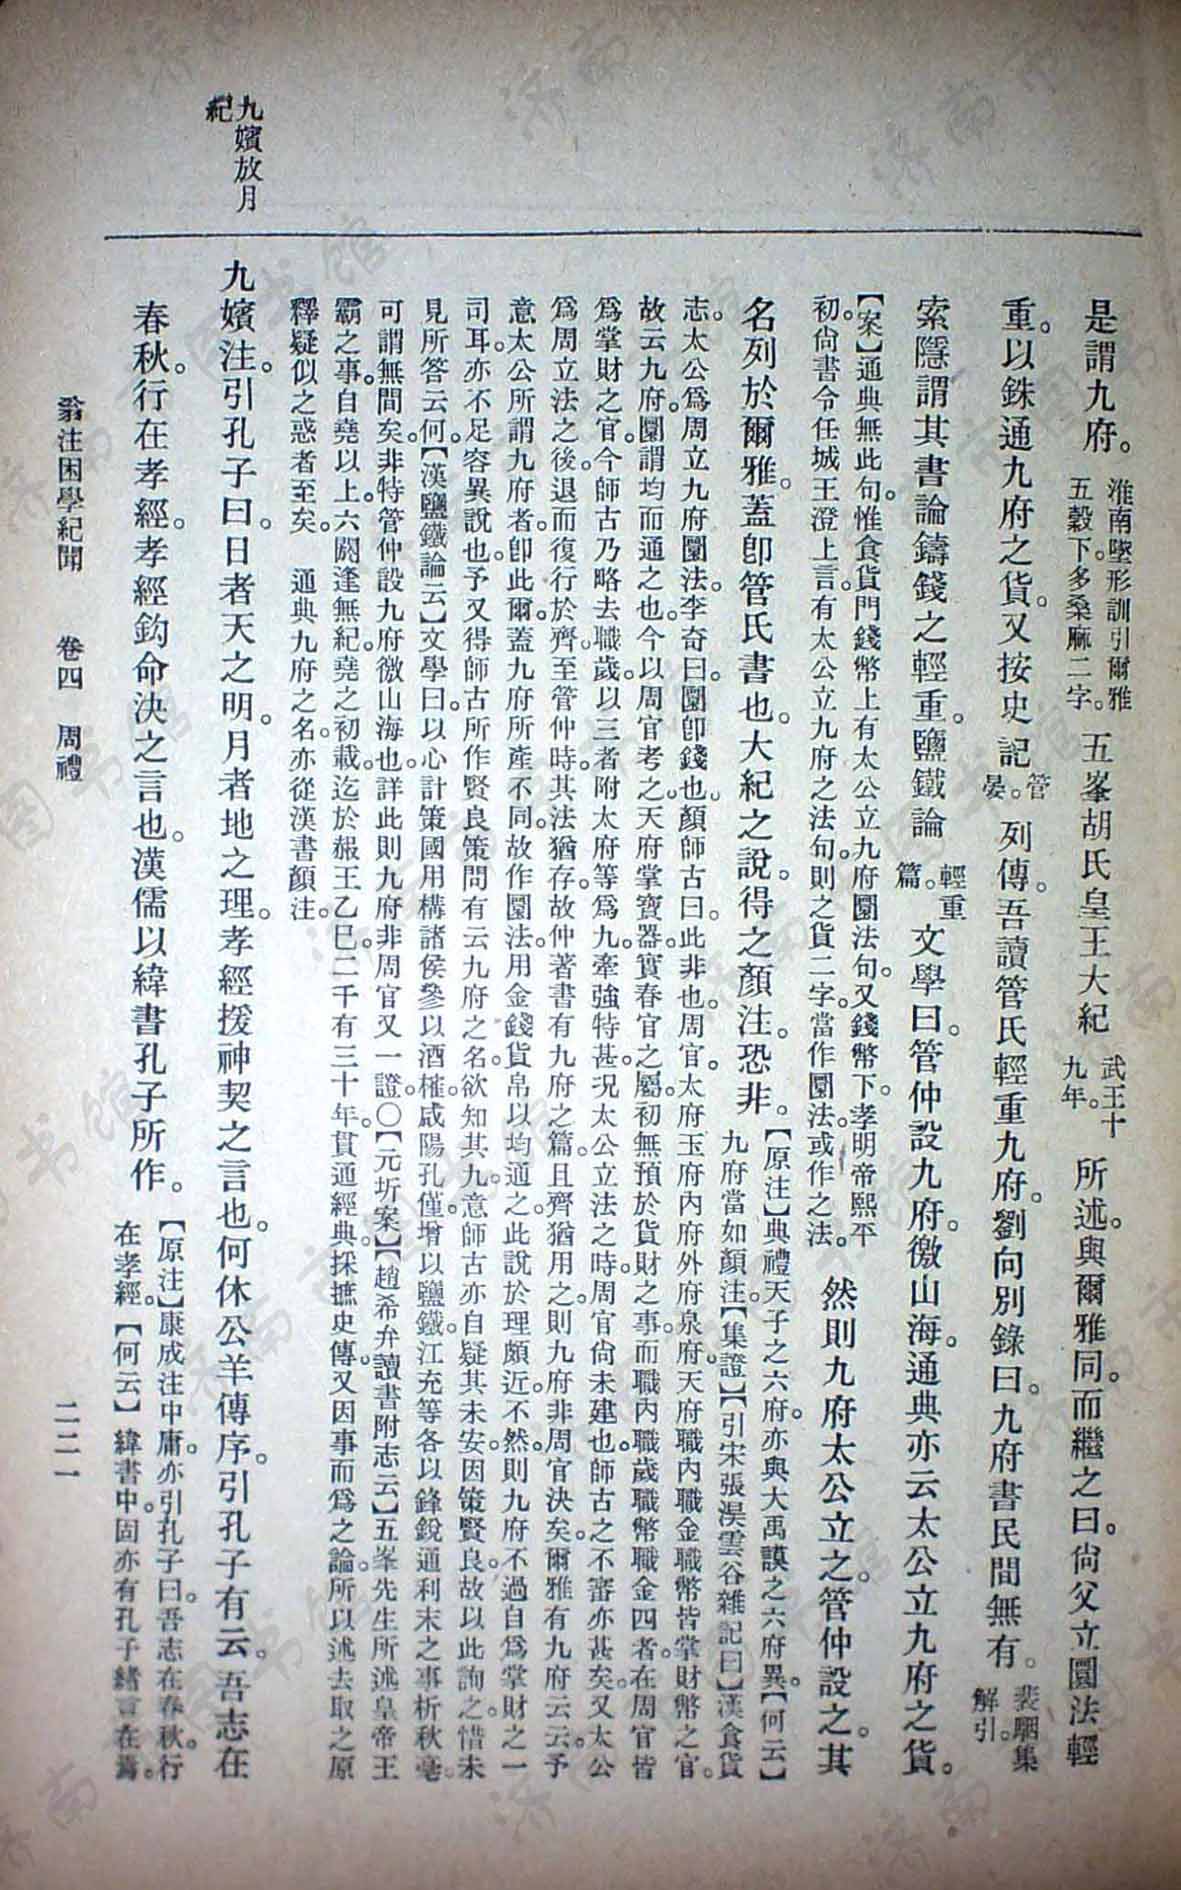 是謂九府。淮南墬形訓引爾雅五穀下。多桑麻二字。五峯胡氏皇王大紀武王十九年。所述。與爾雅同。而繼之曰。尙父立圜法輕
重。以銖通九府之貨。又按史記管晏。列傳。吾讀管氏輕重九府。劉向別錄曰。九府書民間無有。裴駰集解引。
索隱謂其書論鑄錢之輕重。鹽鐵論輕重篇。文學曰。管仲設九府。徼山海。通典亦云太公立九府之貨。
【案】通典無此句。惟食貨門錢幣上有太公立九府圜法句。又錢幣下。孝明帝熙平
初。尙書令任城王澄上言。有太公立九府之法句。則之貨二字。當作圜法。或作之法。
然則九府太公立之。管仲設之。其
名列於爾雅。蓋卽管氏書也。大紀之說。得之顏注。恐非。【原注】典禮天子之六府。亦與大禹謨之六府異。【何云】
九府當如顏注。【集證】【引宋張淏雲谷雜記曰】漢食貨
志。太公爲周立九府圜法。李奇曰。圜卽錢也。顏師古曰。此非也。周官。太府玉府內府外府泉府。天府職內職金職幣皆掌財幣之官。
故云九府。圜謂均而通之也。今以周官考之。天府掌寶器。實春官之屬。初無預於貨財之事。而職內職歲職幣職金四者。在周官皆
爲掌財之官。今師古乃略去職歲。以三者附大府等爲九。牽強特甚。況太公立法之時。周官尙未建也。師古之不審亦甚矣。又太公
爲周立法之後。退而復行於齊。至管仲時。其法猶存。故仲著書有九府之篇。且齊猶用之。則九府非周官決矣。爾雅有九府云云。予
意太公所謂九府者。卽此爾。蓋九府所產不同。故作圜法。用金錢貨帛以均通之。此說於理頗近。不然。則九府不過自爲掌財之一
司耳。亦不足容異說也。予又得師古所作賢良策問有云九府之名。欲知其九。意師古亦自疑其未安。因策賢良。故以此詢之。惜未
見所答云何。【漢鹽鐵論云】文學曰。以心計策國用。構諸侯。參以酒榷。咸陽孔僅。增以鹽鐵。江充等各以鋒銳通利末之事析秋毫。
可謂無間矣。非特管仲設九府。徼山海也。詳此則九府非周官又一證。〇【元圻案】【趙希弁讀書附志云】五峯先生所述皇帝王
霸之事。自堯以上。六閼逢無紀。堯之初載。迄於赧王乙巳。二千有三十年。貫通經典。採摭史傳。又因事而爲之論。所以述去取之原
釋疑似之惑者至矣。　通典九府之名。亦從漢書顏注。
九嬪放月
紀
九嬪注。引孔子曰。日者天之明。月者地之理。孝經援神契之言也。何休公羊傳序。引孔子有云。吾志在
春秋。行在孝經。孝經鈎命決之言也。漢儒以緯書孔子所作。【原注】康成注中庸。亦引孔子曰。吾志在春秋。行
在孝經。【何云】緯書中。固亦有孔子緒言在焉。
翁注困學紀聞　卷四　周禮　二二一